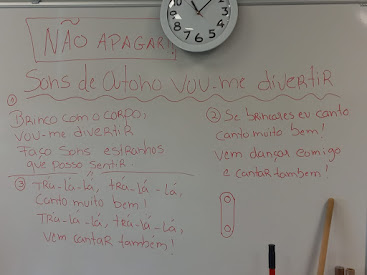 NÃO APAGAR!
Sons de Outono vou-me divertir
①
Brinco com o corpo,
vou-me divertir
Faço sons estranhos
que posso sentir.
② Se brincares eu canto
Canto muito bem!
Vem dançar comigo
e cantar também!
③ Trá-lá-lá, trá-lá-lá,
Canto muito bem!
Trá-lá-lá, trá-lá-lá,
Vem cantar também!